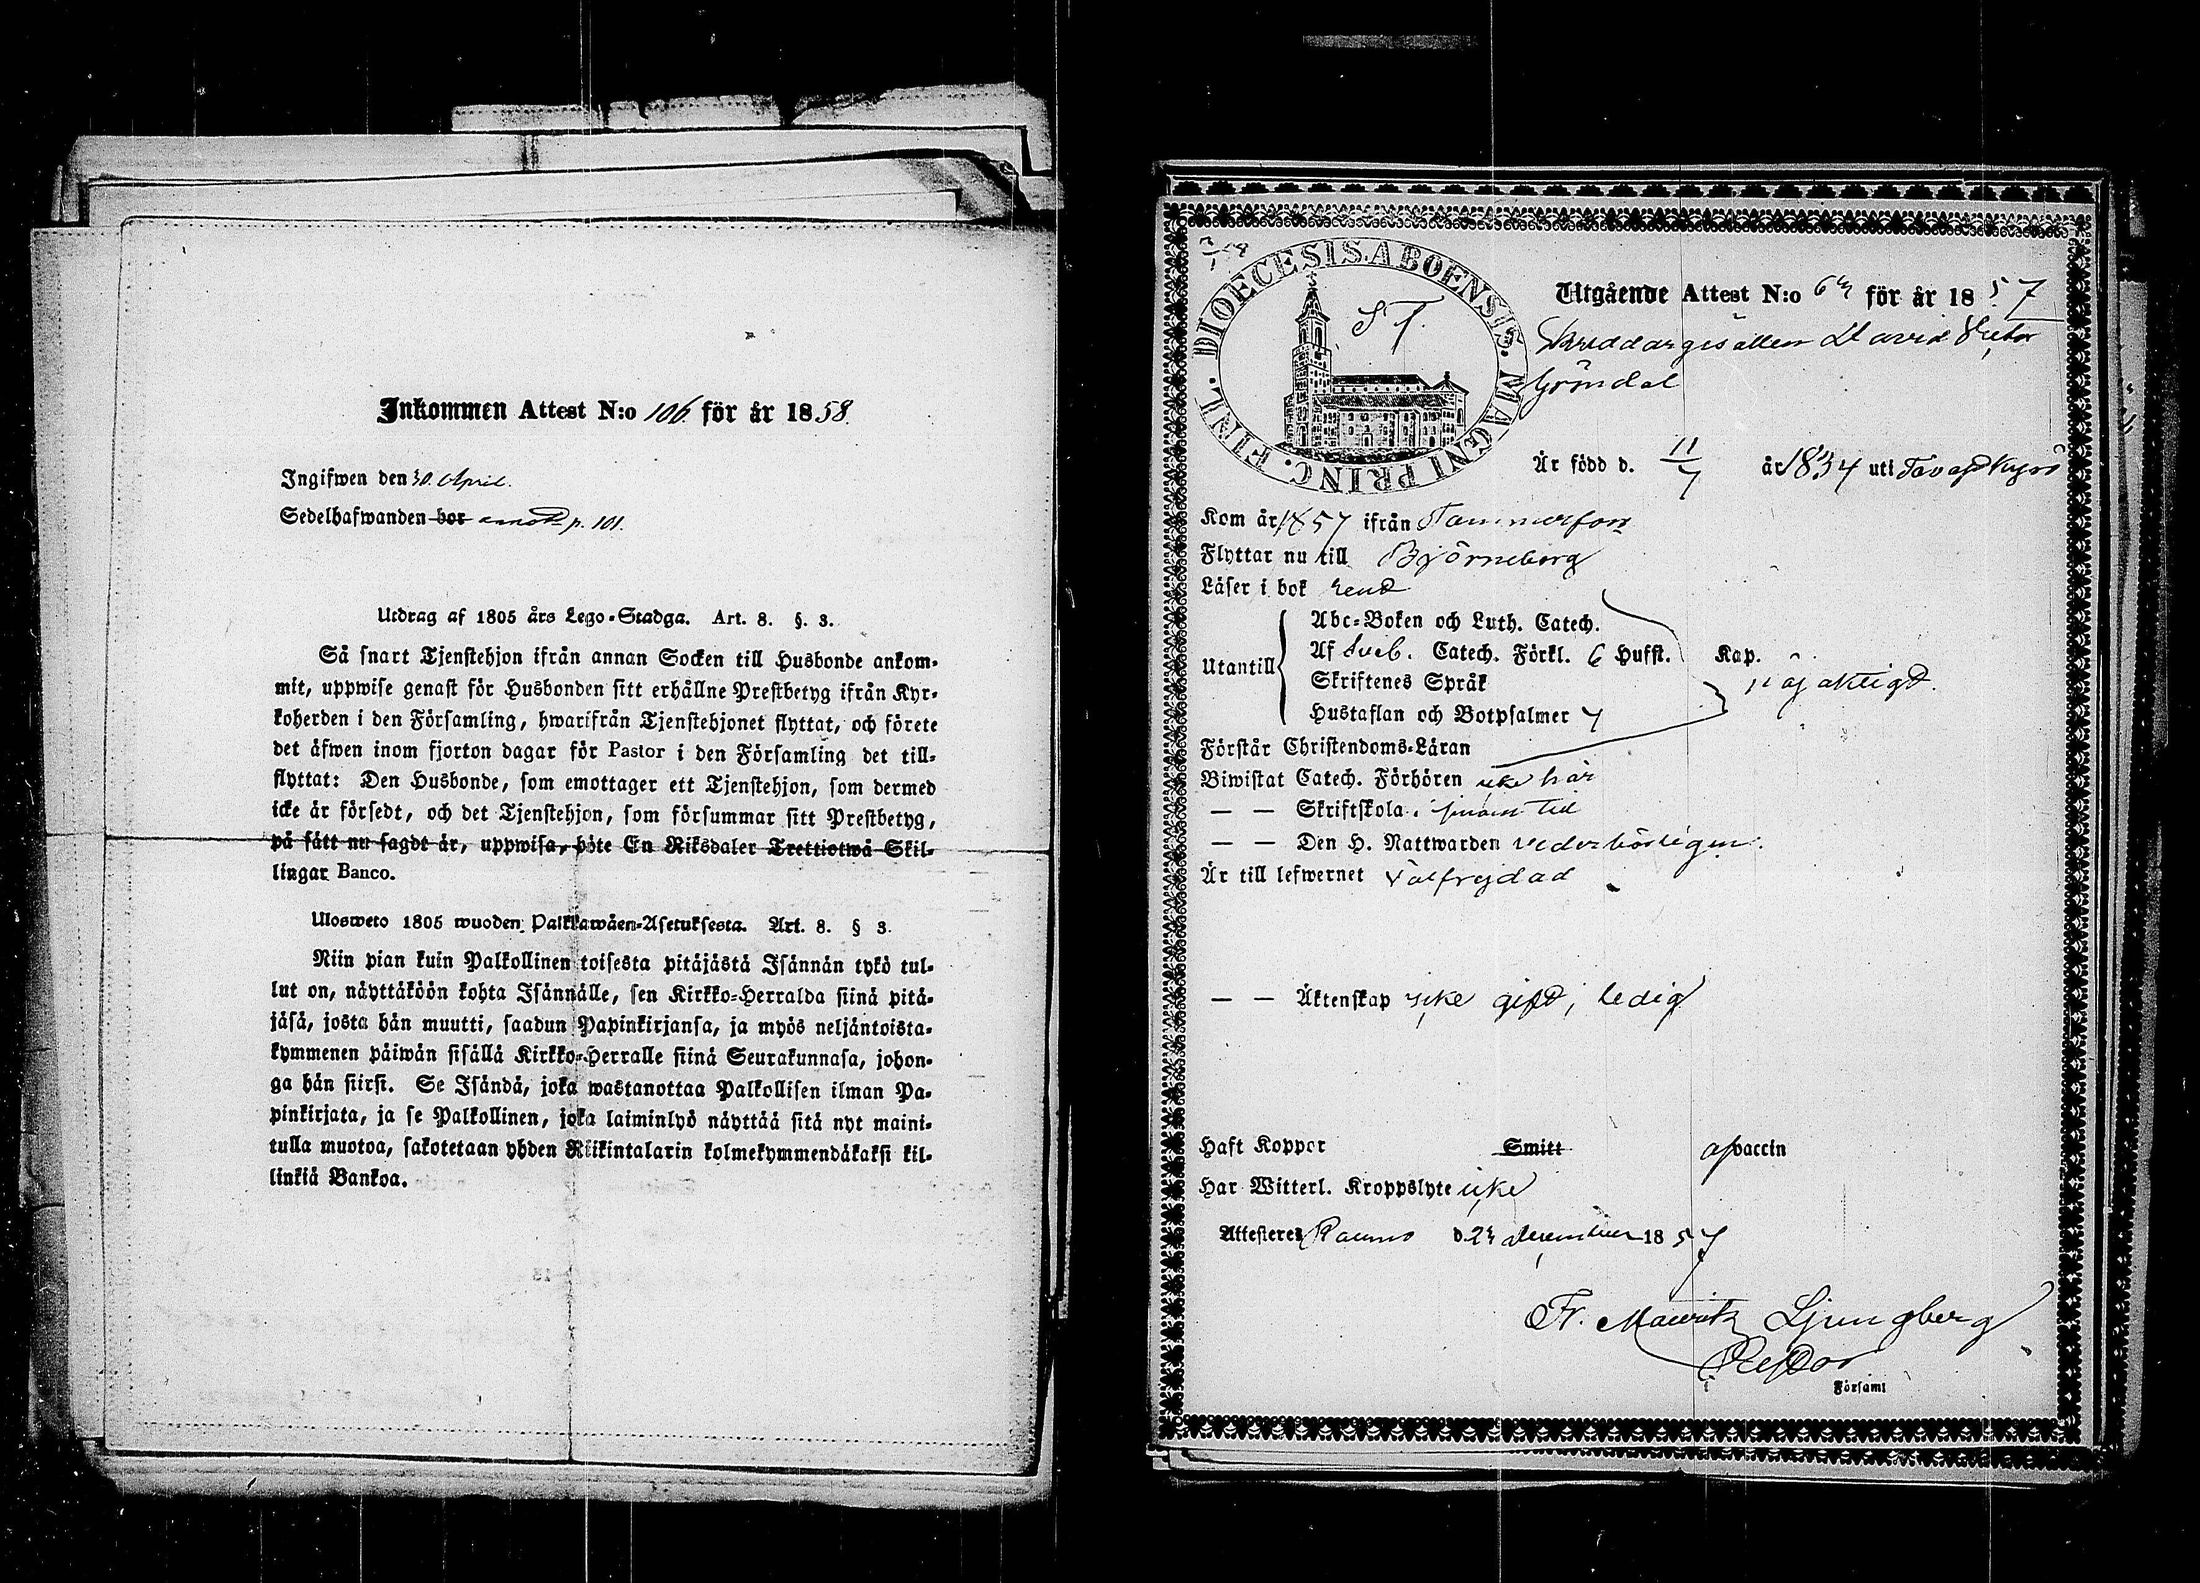 Inkommen Attest N:o 106. för år 1858.
Ingifwen den 30. April.
Sedelhafwanden bor p. 101.
Utdrag af 1805 års Lego-Stadga. Art. 8. §. 3.
Så snart Tjenstehjon ifrån annan Socken till Husbonde ankom-
mit, uppwise genast för Husbonden sitt erhållne Prestbetyg ifrån Kyr-
koherden i den Församling, hwarifrån Tjenstehjonet flyttat, och förete
det äfwen inom fjorton dagar för Pastor i den Församling det till-
flyttat: Den Husbonde, som emottager ett Tjenstehjon, som dermed
icke är försedt, och det Tjenstehjon, som försummar sitt Prestbetyg,
på sätt nu sagdt är, uppwisa, böte En Riksdaler Trettiotwå Skil-
lingar Banco.
Ulosweto 1805 wuoden Palkkawäen-Asetuksesta. Art. 8. § 3.
Niin pian kuin Palkollinen toisesta pitäjästä Isännän tykö tul-
lut on, näyttäköön kohta Isännälle, sen Kirkko-Herralda siinä pitä-
jäsä, josta hän muutti, saadun Papinkirjansa, ja myös neljäntoista-
kymmenen päiwän sisällä Kirkko-Herralle siinä Seurakunnasa, johon-
ga hän siirsi. Se Isändä, joka wastanottaa Palkollisen ilman Pa-
pinkirjata, ja se Palkollinen, joka laiminlyö näyttää sitä nyt maini-
tulla muotoa, sakotetaan yhden Riikintalarin kolmekymmendäkaksi kil-
linkiä Bankoa.
DIOECESIS ABOENSIS. MAGNI PRINC. FINL.
S T.
Utgående Attest N:o för år 1857
Skreddargesällen David Victor
Gröndal
Är född d. 11/7 år 1834 uti Tavastkyro
Kom år 1857 ifrån Tammerfors
Flyttar nu till Björneborg
Läser i bok rent
Utantill
Abc-Boken och Luth. Catech.
Af Sveb. Catech. Förkl. 6 Hufst. Kap.
Skriftenes Språk
Hustaflan och Botpsalmer 7
nöjaktigt.
Förstår Christendoms-Läran
Biwistat Catech. Förhören icke här
— — Skriftskola i sinom tid
— — Den H. Nattwarden vederbörligen.
Är till lefwernet Välfrejdad
— — Äktenskap icke gift, ledig
Haft Koppor Smitt af vaccin
Har Witterl. Kroppslyte icke
Attesteres Raumo d. 23 December 1857
Fr. Mauritz Ljungberg
Pastor
i Församl